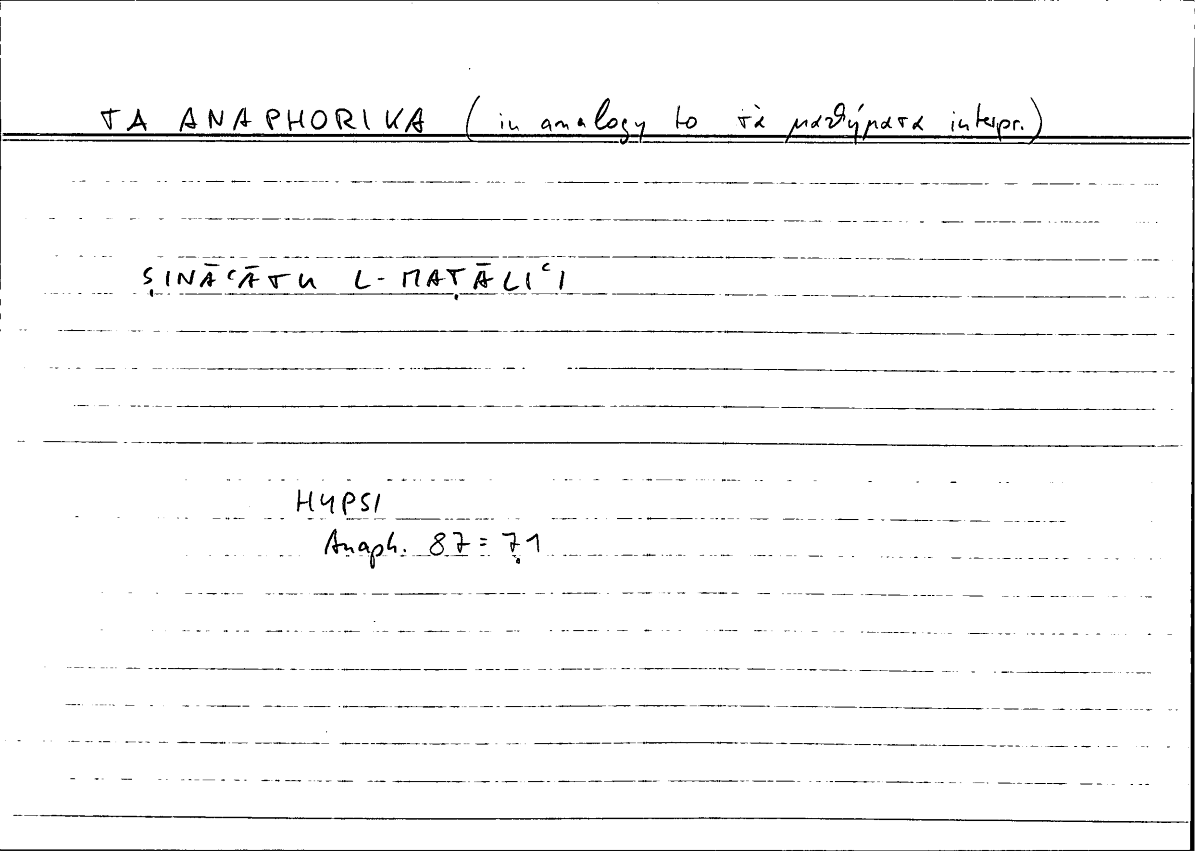 TA ANAPHORIKA (in analogy to τὰ μαθήματα interpr.)
ṢINĀʿĀTU L-MAṬĀLIʿI
HYPSI
Anaph. 87 = 71